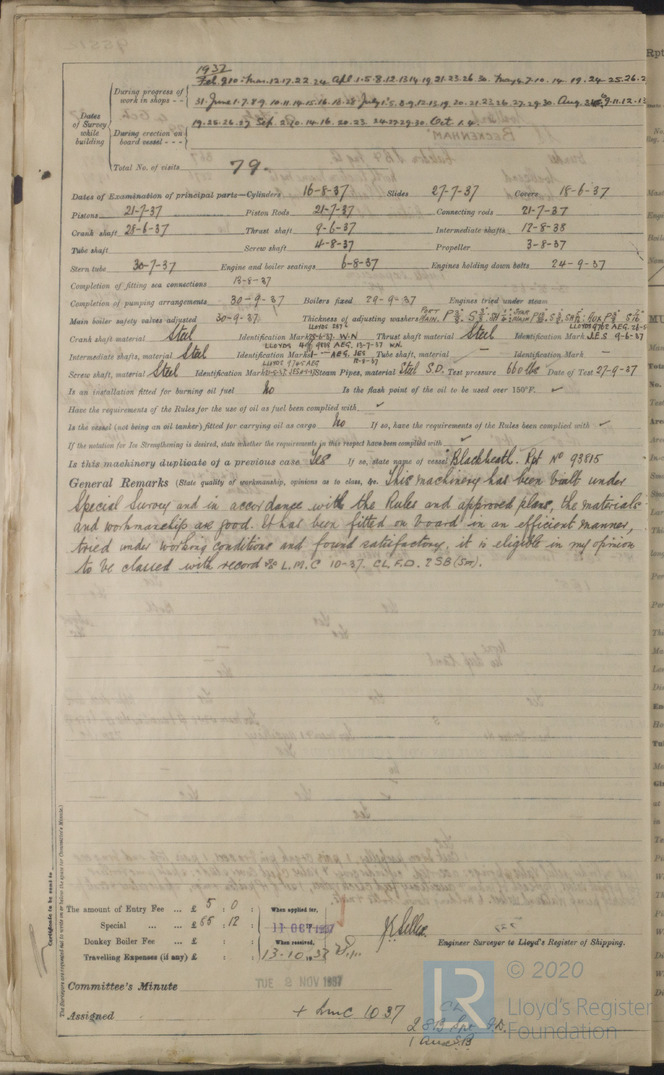 1937
Feb 9.10. Mar. 12.17.22.24 Apl 1.5.8.12.13.14.19.21.23.26.30. May 4.7.10.14.19.24.25.26.2
During progress of work in shops - -
31. June 1.7.8.9.10.11.14.15.16.18.28 July 1.5.8.9.12.13.19.20.21.23.26.27.29.30. Aug. 9.11.12.13
Dates of Survey while building
During erection on board vessel - - -
19.25.26.27 Sep. 2.10.14.16.20.23.24.27.29.30 Oct. 1.4.
Total No. of visits 79.
Dates of Examination of principal parts—Cylinders 16-8-37 Slides 27-7-37 Covers 18-6-37
Pistons 21-7-37 Piston Rods 21-7-37 Connecting rods 21-7-37
Crank shaft 28-6-37 Thrust shaft 9-6-37 Intermediate shafts 12-8-38
Tube shaft Screw shaft 4-8-37 Propeller 3-8-37
Stern tube 30-7-37 Engine and boiler seatings 6-8-37 Engines holding down bolts 24-9-37
Completion of fitting sea connections 13-8-37
Completion of pumping arrangements 30-9-37 Boilers fixed 29-9-37 Engines tried under steam
Main boiler safety valves adjusted 30-9-37 Thickness of adjusting washers
Crank shaft material Steel Identification Mark W.N Thrust shaft material Steel Identification Mark J.E.S 9-6-37
Intermediate shafts, material Steel Identification Marks Tube shaft, material — Identification Mark —
Screw shaft, material Steel Identification Mark Steam Pipes, material Steel S.D. Test pressure 660 lbs Date of Test 27-9-37
Is an installation fitted for burning oil fuel No Is the flash point of the oil to be used over 150°F. ✓
Have the requirements of the Rules for the use of oil as fuel been complied with ✓
Is the vessel (not being an oil tanker) fitted for carrying oil as cargo No If so, have the requirements of the Rules been complied with ✓
If the notation for Ice Strengthening is desired, state whether the requirements in this respect have been complied with ✓
Is this machinery duplicate of a previous case Yes If so, state name of vessel "Blackheath". Rpt No 93815
General Remarks (State quality of workmanship, opinions as to class, &c. This machinery has been built under
Special Survey and in accordance with the Rules and approved plans, the materials
and workmanship are good. It has been fitted on board in an efficient manner,
tried under working conditions and found satisfactory, it is eligible in my opinion
to be classed with record of L.M.C 10-37. CL. F.D. 2SB (Spt).
The amount of Entry Fee ... £ 5 : 0 : When applied for,
Special ... ... £ 66 : 12 : 11 OCT 1937
Donkey Boiler Fee ... £ : : When received,
Travelling Expenses (if any) £ : : 13-10-37
Engineer Surveyor to Lloyd's Register of Shipping.
Committee's Minute TUE 2 NOV 1937
Assigned + LMC 10 37 CL
2 SB Spt FD.
1 Aux S.B.
Certificate to be sent to
The Surveyors are requested not to write on or below the space for Committee's Minute.
LR
© 2020
Lloyd's Register
Foundation